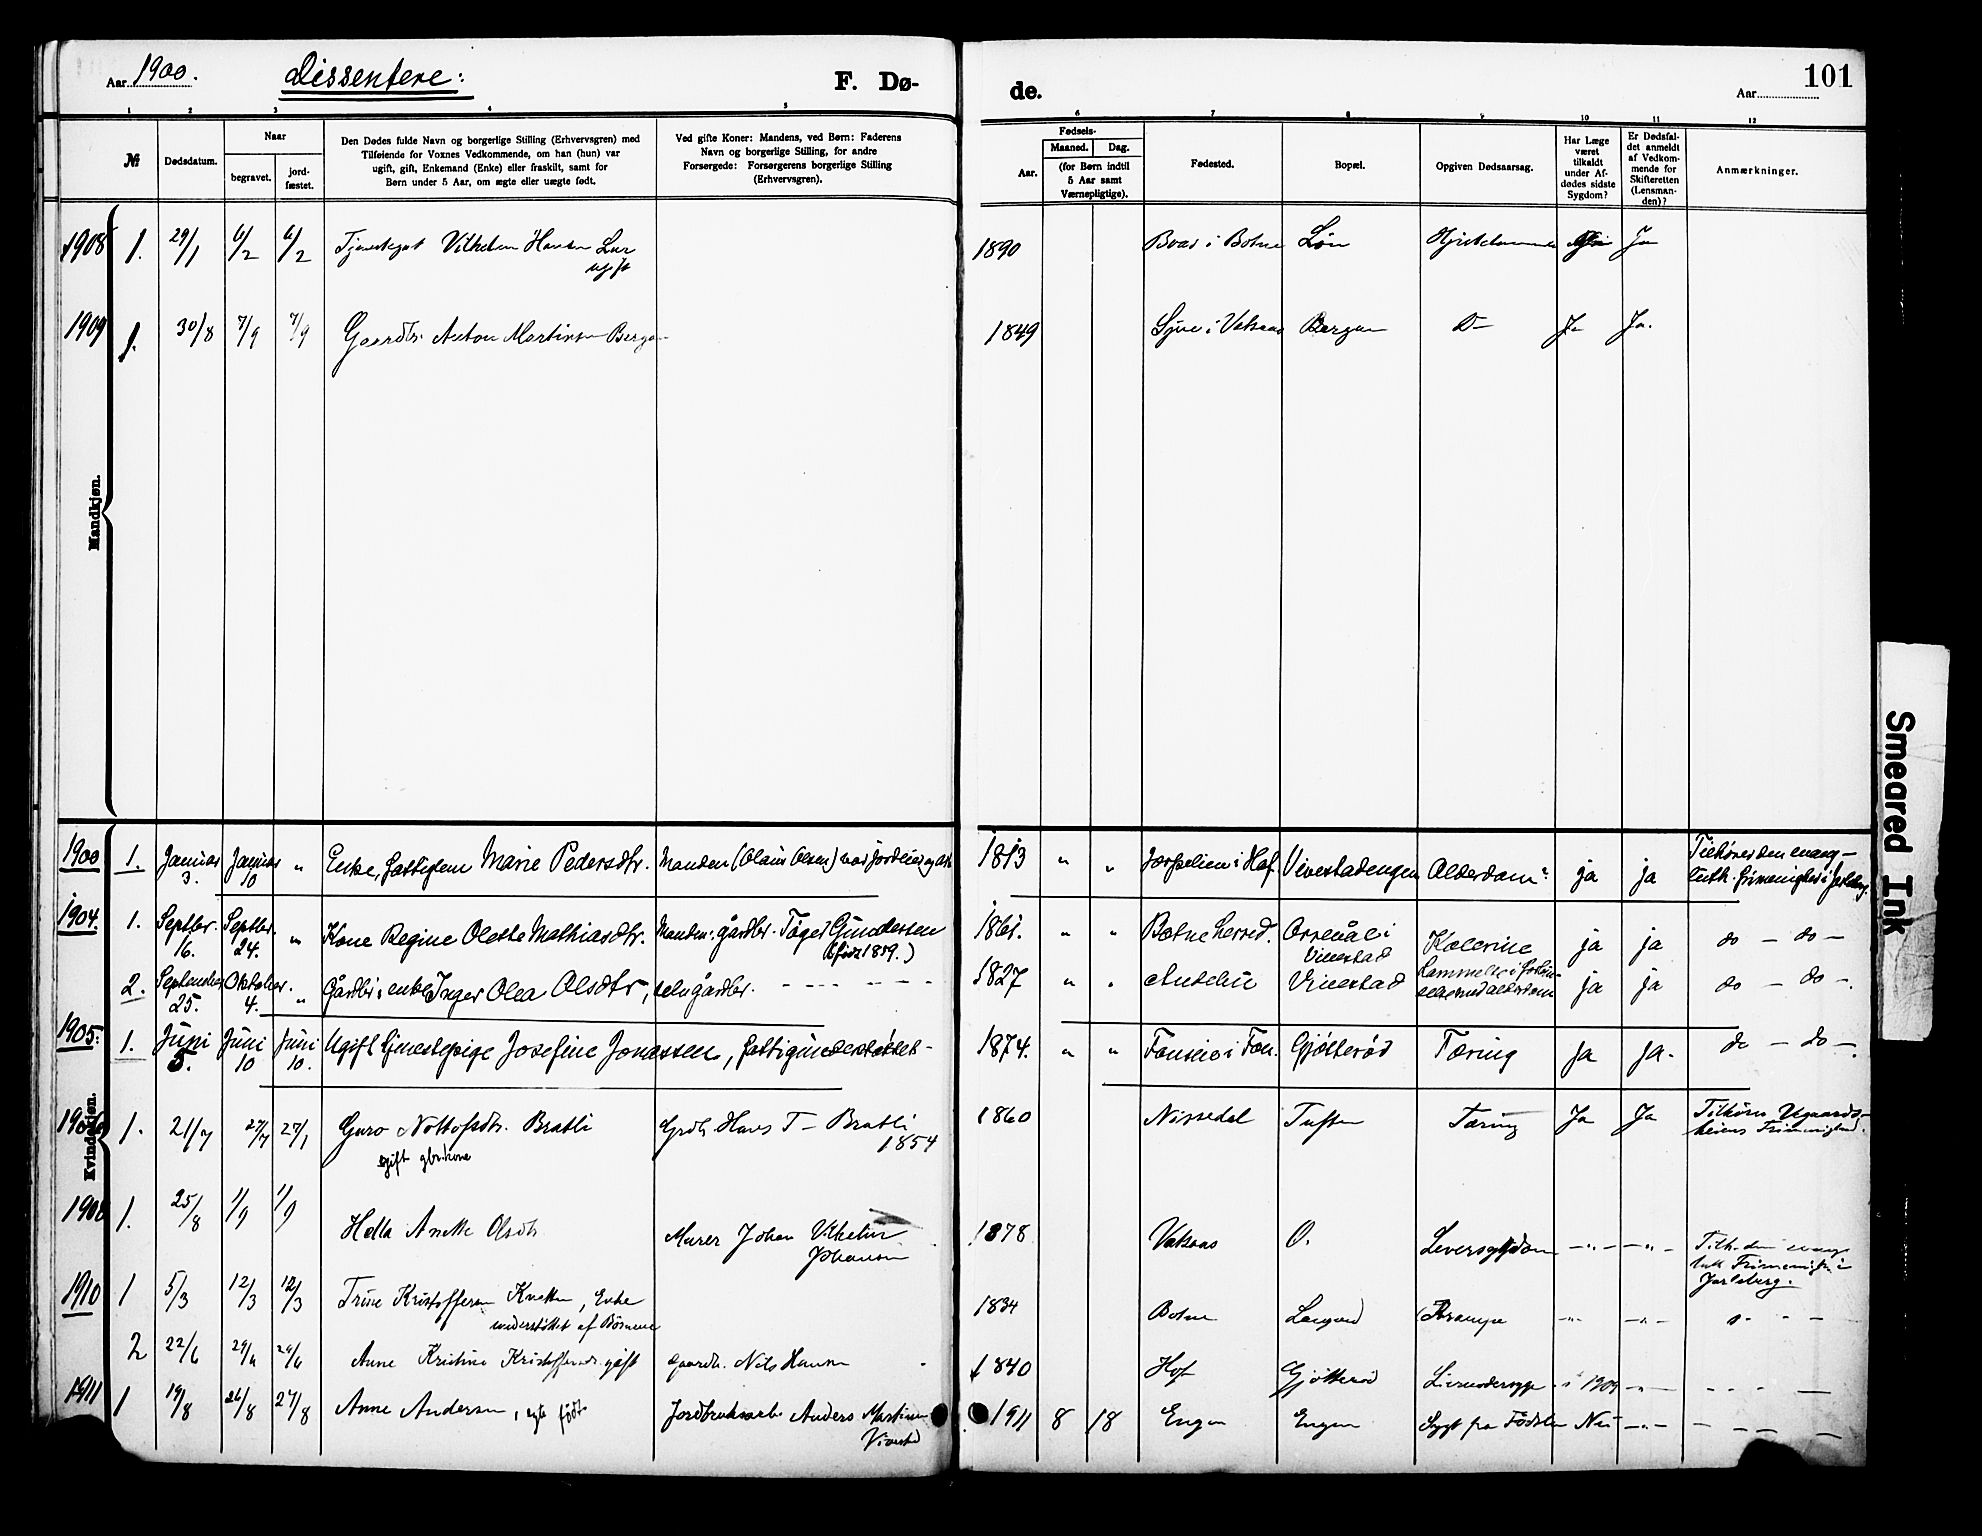 Aar 1900. Dissentere: F. Dø-
de. Aar 101
1 2 3 4 5 6 7 8 9 10 11 12
№ Dødsdatum. Naar begravet. jord-
fæstet.
Den Dødes fulde Navn og borgerlige Stilling (Erhvervsgren) med
Tilføiende for Voxnes Vedkommende, om han (hun) var
ugift, gift, Enkemand (Enke) eller fraskilt, samt for
Børn under 5 Aar, om ægte eller uægte født.
Ved gifte Koner: Mandens, ved Børn: Faderens
Navn og borgerlige Stilling, for andre
Forsørgede: Forsørgerens borgerlige Stilling
(Erhvervsgren).
Fødsels-
Aar. Maaned. Dag.
(for Børn indtil
5 Aar samt
Værnepligtige).
Fødested.
Bopæl.
Opgiven Dødsaarsag.
Har Læge
været
tilkaldt
under Af-
dødes sidste
Sygdom?
Er Dødsfal-
det anmeldt
af Vedkom-
mende for
Skifteretten
(Lensman-
den)?
Anmærkninger.
Mandkjøn.
1908 1. 29/1 6/2 6/2 Vilhelm Hansen
ugift
1890 i Botne Ja
1909 1. 30/8 7/9 7/9 Gaardbr. Anton Martinsen Bergan
1849 i Vaksaas Bergan D— Ja Ja.
Kvindekjøn.
1900 1. Januar 3. Januar 10 " Enke, fattiglem Marie Pedersdtr. Manden (Olaus Olsen) var jordeier og
1813 " " i Hof. Vivestadengen Alderdom ja ja Tilhører den evang-
luth. frimenighed i Jarlsberg.
1904. 1. Septbr. 16. Septbr. 24. " Kone Regine Olette Mathiasdtr. Manden: gårdbr. Tøger Gundersen
(født 1859.)
1861. " " Botne herred. Orrevåle i
Vivestad Kolerine ja ja do — do —
2. September 25. Oktober 4. " Gårdbr. enke Inger Olea Olsdtr, selv gårdbr.
1827 " " Vivestad ja ja do — do —.
1905: 1. Juni 5. Juni 10 Juni 10. Ugift tjenestepige Josefine Jonassen, fattigunderstøttet-
1874. " " i Fon. Gjøtterød Tæring ja ja. do — do —.
1906 1. 21/7 27/7 27/7 Guro Bratli
gift gbr.kone
Grdb. Hans T— Bratli
1854
1860 Nissedal Tufte Tæring Ja Ja
1908 1. 25/8 1/9 1/9 Hella Anette Olsdtr Murer Johan Vilhelm
Johansen
1878 Vaksaas O. Leversygdom —"— —"— Tilh. den evang
luth Frimenigh. i
Jarlsberg.
1910 1 5/3 12/3 12/3 Trine Kristoffersen , Enke
understøttet af Børnene
1834 Botne —"— —"—
2 22/6 29/6 29/6 Anne Kristine gift Gaardb. Nils Hansen
1840 Hof Gjøtterød i 1909 —"—
1911 1 19/8 26/8 27/8 Anne Andersen, egte født Anders Martinsen
Vivestad
1911 8 18 Engen Engen Sygt fra Fødslen Nei —"—
Smeared Ink